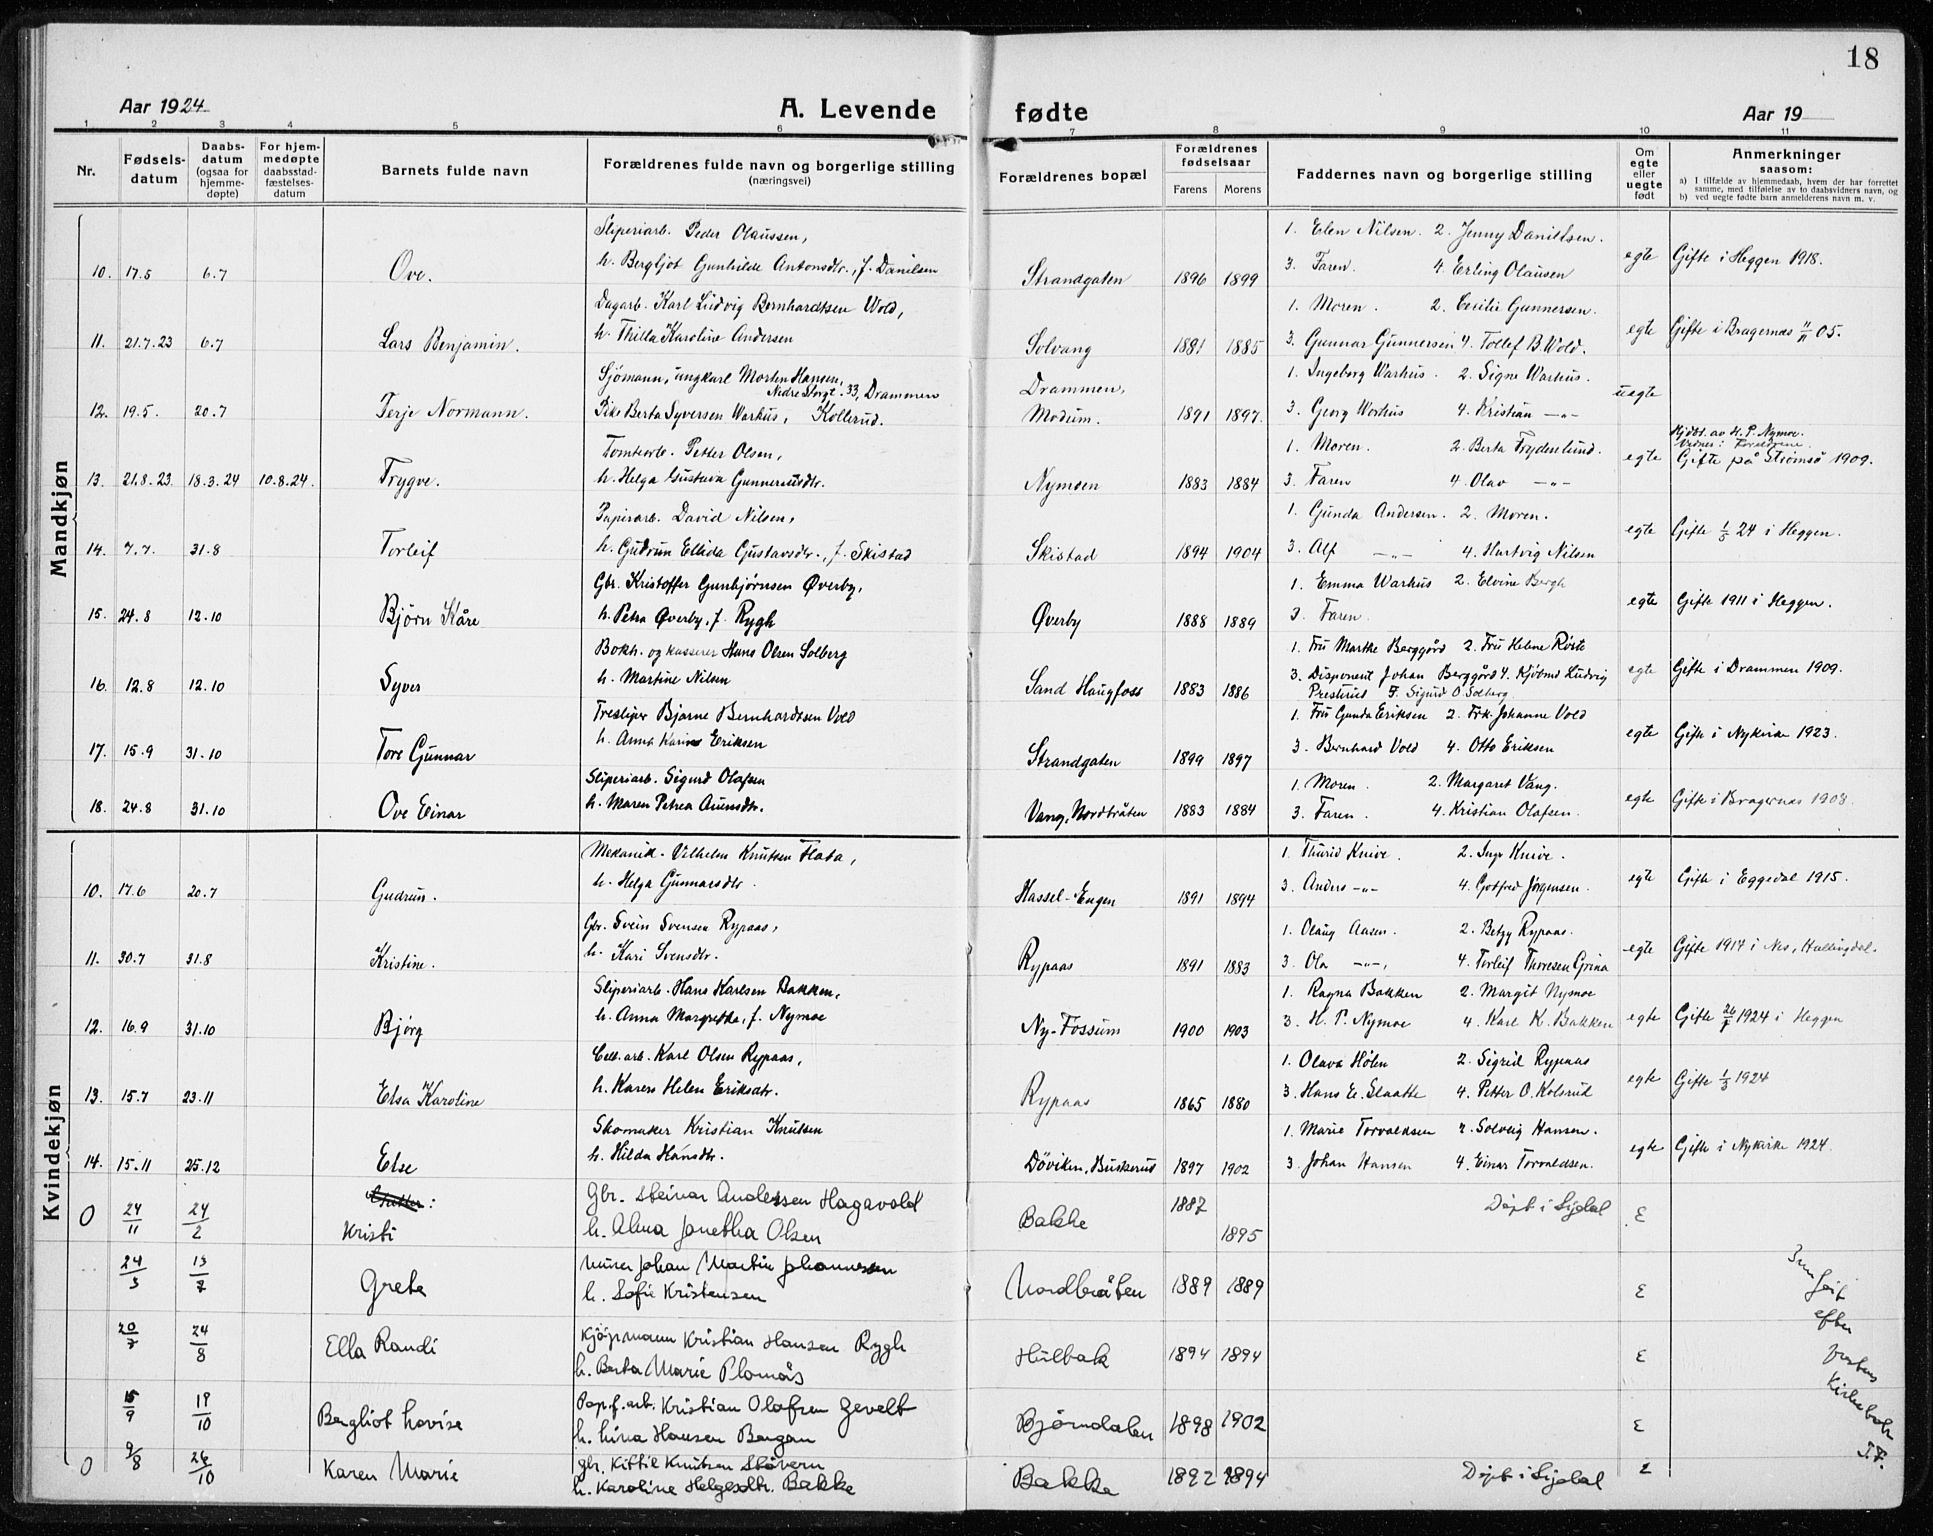 18
Aar 1924
A. Levende fødte
Aar 19
1 2 3 4 5 6 7 8 9 10 11
Nr.
Fødsels-
datum
Daabs-
datum
(ogsaa for
hjemme-
døpte)
For hjem-
medøpte
daabsstad-
fæstelses-
datum
Barnets fulde navn
Forældrenes fulde navn og borgerlige stilling
(næringsvei)
Forældrenes bopæl
Forældrenes
fødselsaar
Farens Morens
Faddernes navn og borgerlige stilling
Om
egte
eller
uegte
født
Anmerkninger
saasom:
a) I tilfælde av hjemmedaab, hvem der har forrettet
samme, med tilføielse av to daabsvidners navn, og
b) ved uegte fødte barn anmelderens navn m. v.
Mandkjøn
Sliperiarb. Peder Olaussen, 1. Elen Nilsen. 2. Jenny Daniltsen.
10. 17.5 6.7 Ove. h. Bergljot Gunhilde Antonsdtr., f. Danilsen Strandgaten 1896 1899 3. Faren. 4. Erling Olausen egte Gifte i Heggen 1918.
Dagarb. Karl Ludvig Bernhardtsen Wold, 1. Moren. 2. Cecilie Gunnersen.
11. 21.7.23 6.7 Lars Benjamin. h. Thilla Karoline Andersen Solvang 1881 1885 3. Gunnar Gunnersen 4. Tollef B. Wold. egte Gifte i Bragernæs 11/11 05.
Sjömann, ungkarl Morten Hansen, Drammen, 1. Ingeborg Warhus. 2. Signe Warhus.
Nedre Storgt. 33, Drammen
12. 19.5. 20.7 Terje Normann. Pike Berta Syversen Warhus, Kollerud. Modum. 1891 1897. 3. Georg Warhus 4. Kristian -„- uegte
Tomtearb. Petter Olsen, 1. Moren. 2. Berta Frydenlund. Hjdbt. av H. P. Nymoe.
Vidner: Foreldrene.
13. 21.8.23. 18.3.24 10.8.24. Trygve. h. Helga Gustava Gunneriusdtr. Nymoen 1883 1884 3. Faren 4. Olav -„- egte Gifte på Strömsö 1909.
Papirarb. David Nilsen, 1. Gunda Andersen. 2. Moren.
14. 7.7. 31.8 Torleif h. Gudrun Ellida Gustavsdtr., f. Skistad Skistad 1894 1904 3. Alf -„- 4. Hartvig Nilsen egte Gifte 1/5 24 i Heggen.
Gbr. Kristoffer Gunbjørnsen Øverby, 1. Emma Warhus 2. Elvine Bergh
15. 24.8 12.10 Bjørn Kåre h. Petra Øverby, f. Rygh Øverby 1888 1889 3. Faren. egte Gifte 1911 i Heggen.
Bokh. og kasserer Hans Olsen Solberg 1. Fru Marthe Berggård 2. Fru Helene Röste
16. 12.8 12.10 Syver h. Martine Nilsen Sand Haugfoss 1883 1886 3. Disponent Johan Berggård 4. Kjöbmd Ludvig egte Gifte i Drammen 1909.
Presterud F. Sigurd O. Solberg
Tresliper Bjarne Bernhardtsen Vold 1. Fru Gunda Eriksen 2. Frk. Johanne Vold
17. 15.9 31.10 Tore Gunnar h. Anna Karine Eriksen Strandgaten 1899 1897 3. Bernhard Vold 4. Otto Eriksen egte Gifte i Nykirke 1923.
Sliperiarb. Sigurd Olafsen 1. Moren. 2. Margaret Vang.
18. 24.8 31.10 Ove Einar h. Maren Petrea Arunsdtr. Vang, Nordbråten 1883 1884 3. Faren. 4. Kristian Olafsen. egte Gifte i Bragernæs 1908.
Kvindekjøn
Mekanik. Vilhelm Knutsen Flata, 1. Thurid Knive. 2. Inga Knive.
10. 17.6 20.7 Gudrun. h. Helga Gunnarsdtr. Hassel-Engen 1891 1894 3. Anders -„- 4. Gotfred Jörgensen. egte Gifte i Eggedal 1915.
Gbr. Svein Svensen Rypaas, 1. Olaug Aasen. 2. Betzy Rypaas.
11. 30.7 31.8 Kristine. h. Kari Svensdtr. Rypaas 1891 1883 3. Ola -„-, 4. Torleif Thoresen Grina egte Gifte 1914 i Nes, Hallingdal.
Sliperiarb. Hans Karlsen Bakken, 1. Ragna Bakken 2. Margit Nymoe
12. 16.9 31.10 Bjórg h. Anna Margrethe, f. Nymoe Ny-Fossum 1900 1903 3. H. P. Nymoe 4. Karl K. Bakken egte Gifte 26/7 1924 i Heggen
Cell. arb. Karl Olsen Rypaas, 1. Olava Hólen 2. Sigrid Rypaas
13. 15.7 23.11 Elsa Karoline h. Karen Helen Eriksdtr. Rypaas 1865 1880 3. Hans E. Slaatte 4. Petter O. Kolsrud egte Gifte 1/3 1924
Skomaker Kristian Knutsen 1. Marie Torvaldsen 2. Solveig Hansen.
14. 15.11 25.12 Else h. Hilda Hansdtr. Döviken, Buskerud 1897 1902 3. Johan Hansen 4. Einar Torvaldsen. egte Gifte i Nykirke 1924.
O 24/11 24/2 Kristi Gbr. Steinar Andersen Hagavold Bakke 1887 Döpt i Sigdal E
h. Alma Janetha Olsen 1895
24/3 13/7 Grete Murer Johan Martin Johannesen Nordbråten 1889 1889 E
h. Sofie Kristensen
20/7 24/8 Ella Randi Kjöpmann Kristian Hansen Rygh Hulbak 1894 1894 E
h. Berta Marie Plomås
15/9 19/10 Bergliot Lovise Pap.f.arb. Kristian Olafsen Gevelt Björndalen 1898 1902 E
h. Lina Hansen Bergan
O 9/8 26/10 Karen Marie gbr. Kittil Knutsen Stövern Bakke 1892 1894 Döpt i Sigdal E
h. Karoline Helgesdtr. Bakke
efter
Kirkebok